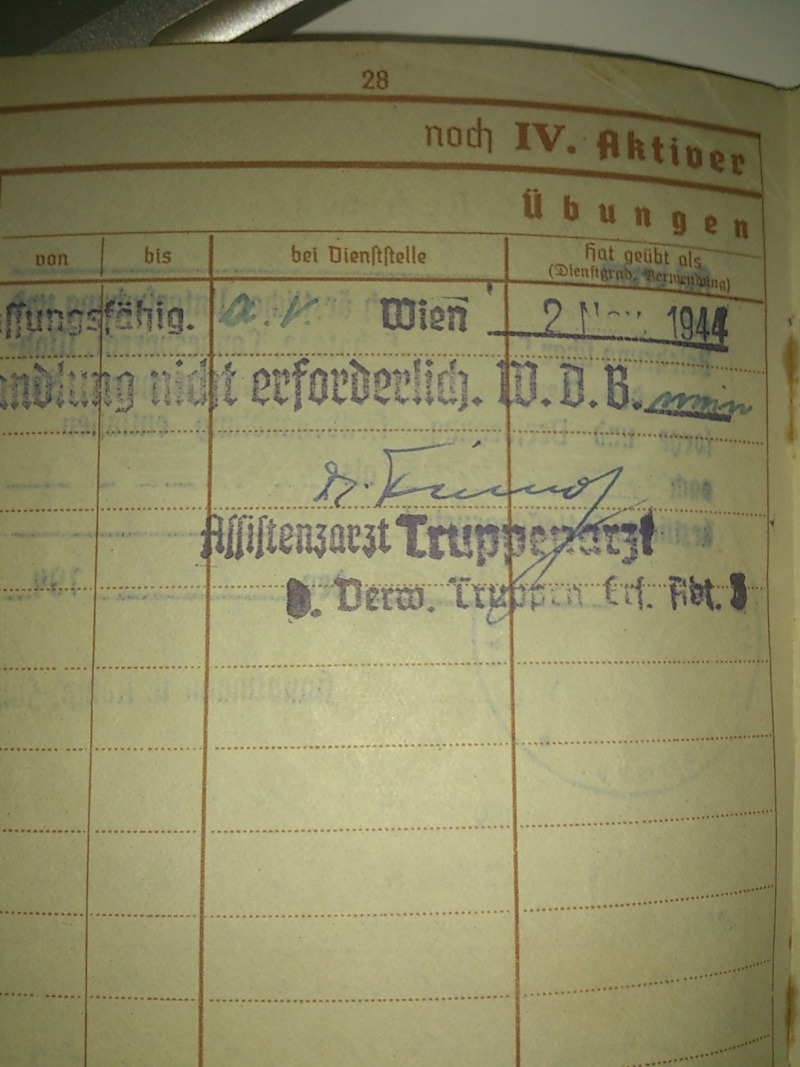 28
noch IV. Aktiver
Übungen
von bis bei Dienststelle hat geübt als
(Dienstgrad, Verwendung)
ssungsfähig. a.v. Wien 2 Nov. 1944
ndlung nicht erforderlich. W.D.B.
Dr.
Assistenzarzt Truppenarzt
Verw. Truppen Ers. Abt.